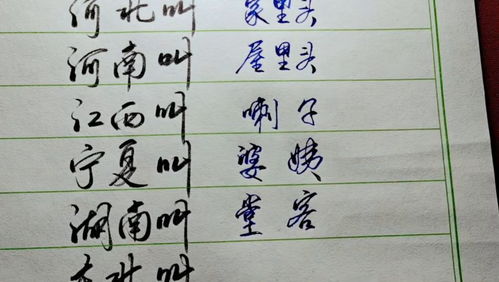 河北叫 家里头
河南叫 屋里头
江西叫 喇子
宁夏叫 婆姨
湖南叫 堂客
东北叫